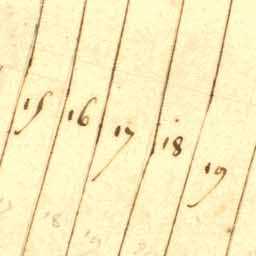 15 16 17 18 19